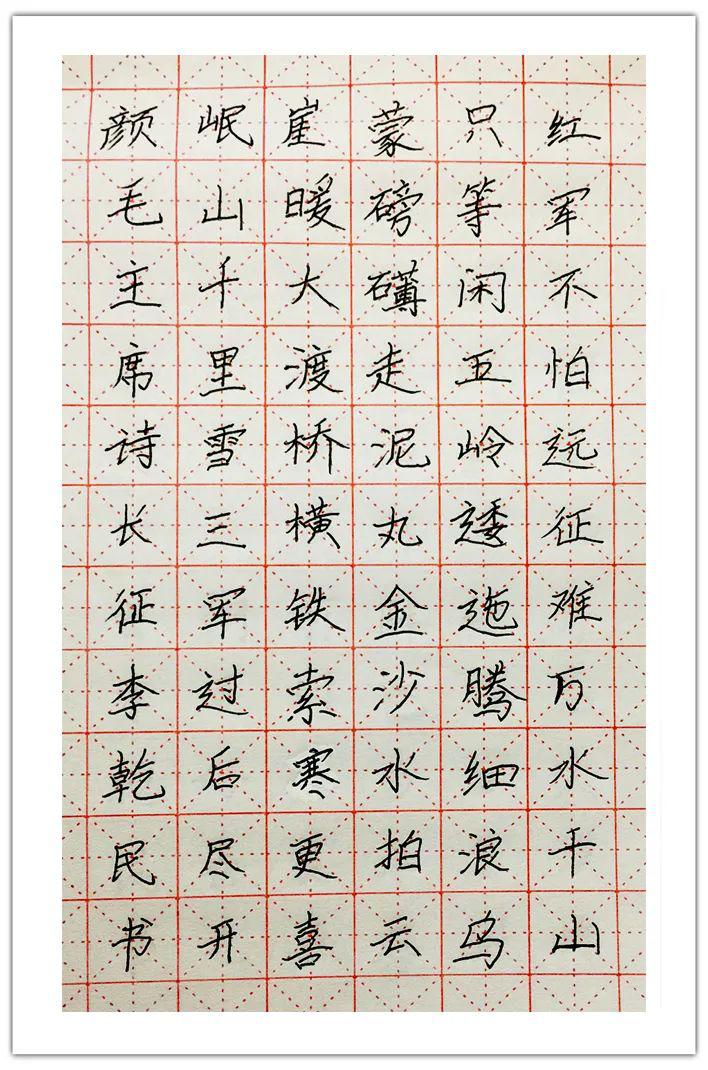 红军不怕远征难万水千山
只等闲五岭逶迤腾细浪乌
蒙磅礴走泥丸金沙水拍云
崖暖大渡桥横铁索寒更喜
岷山千里雪三军过后尽开
颜毛主席诗长征李乾民书